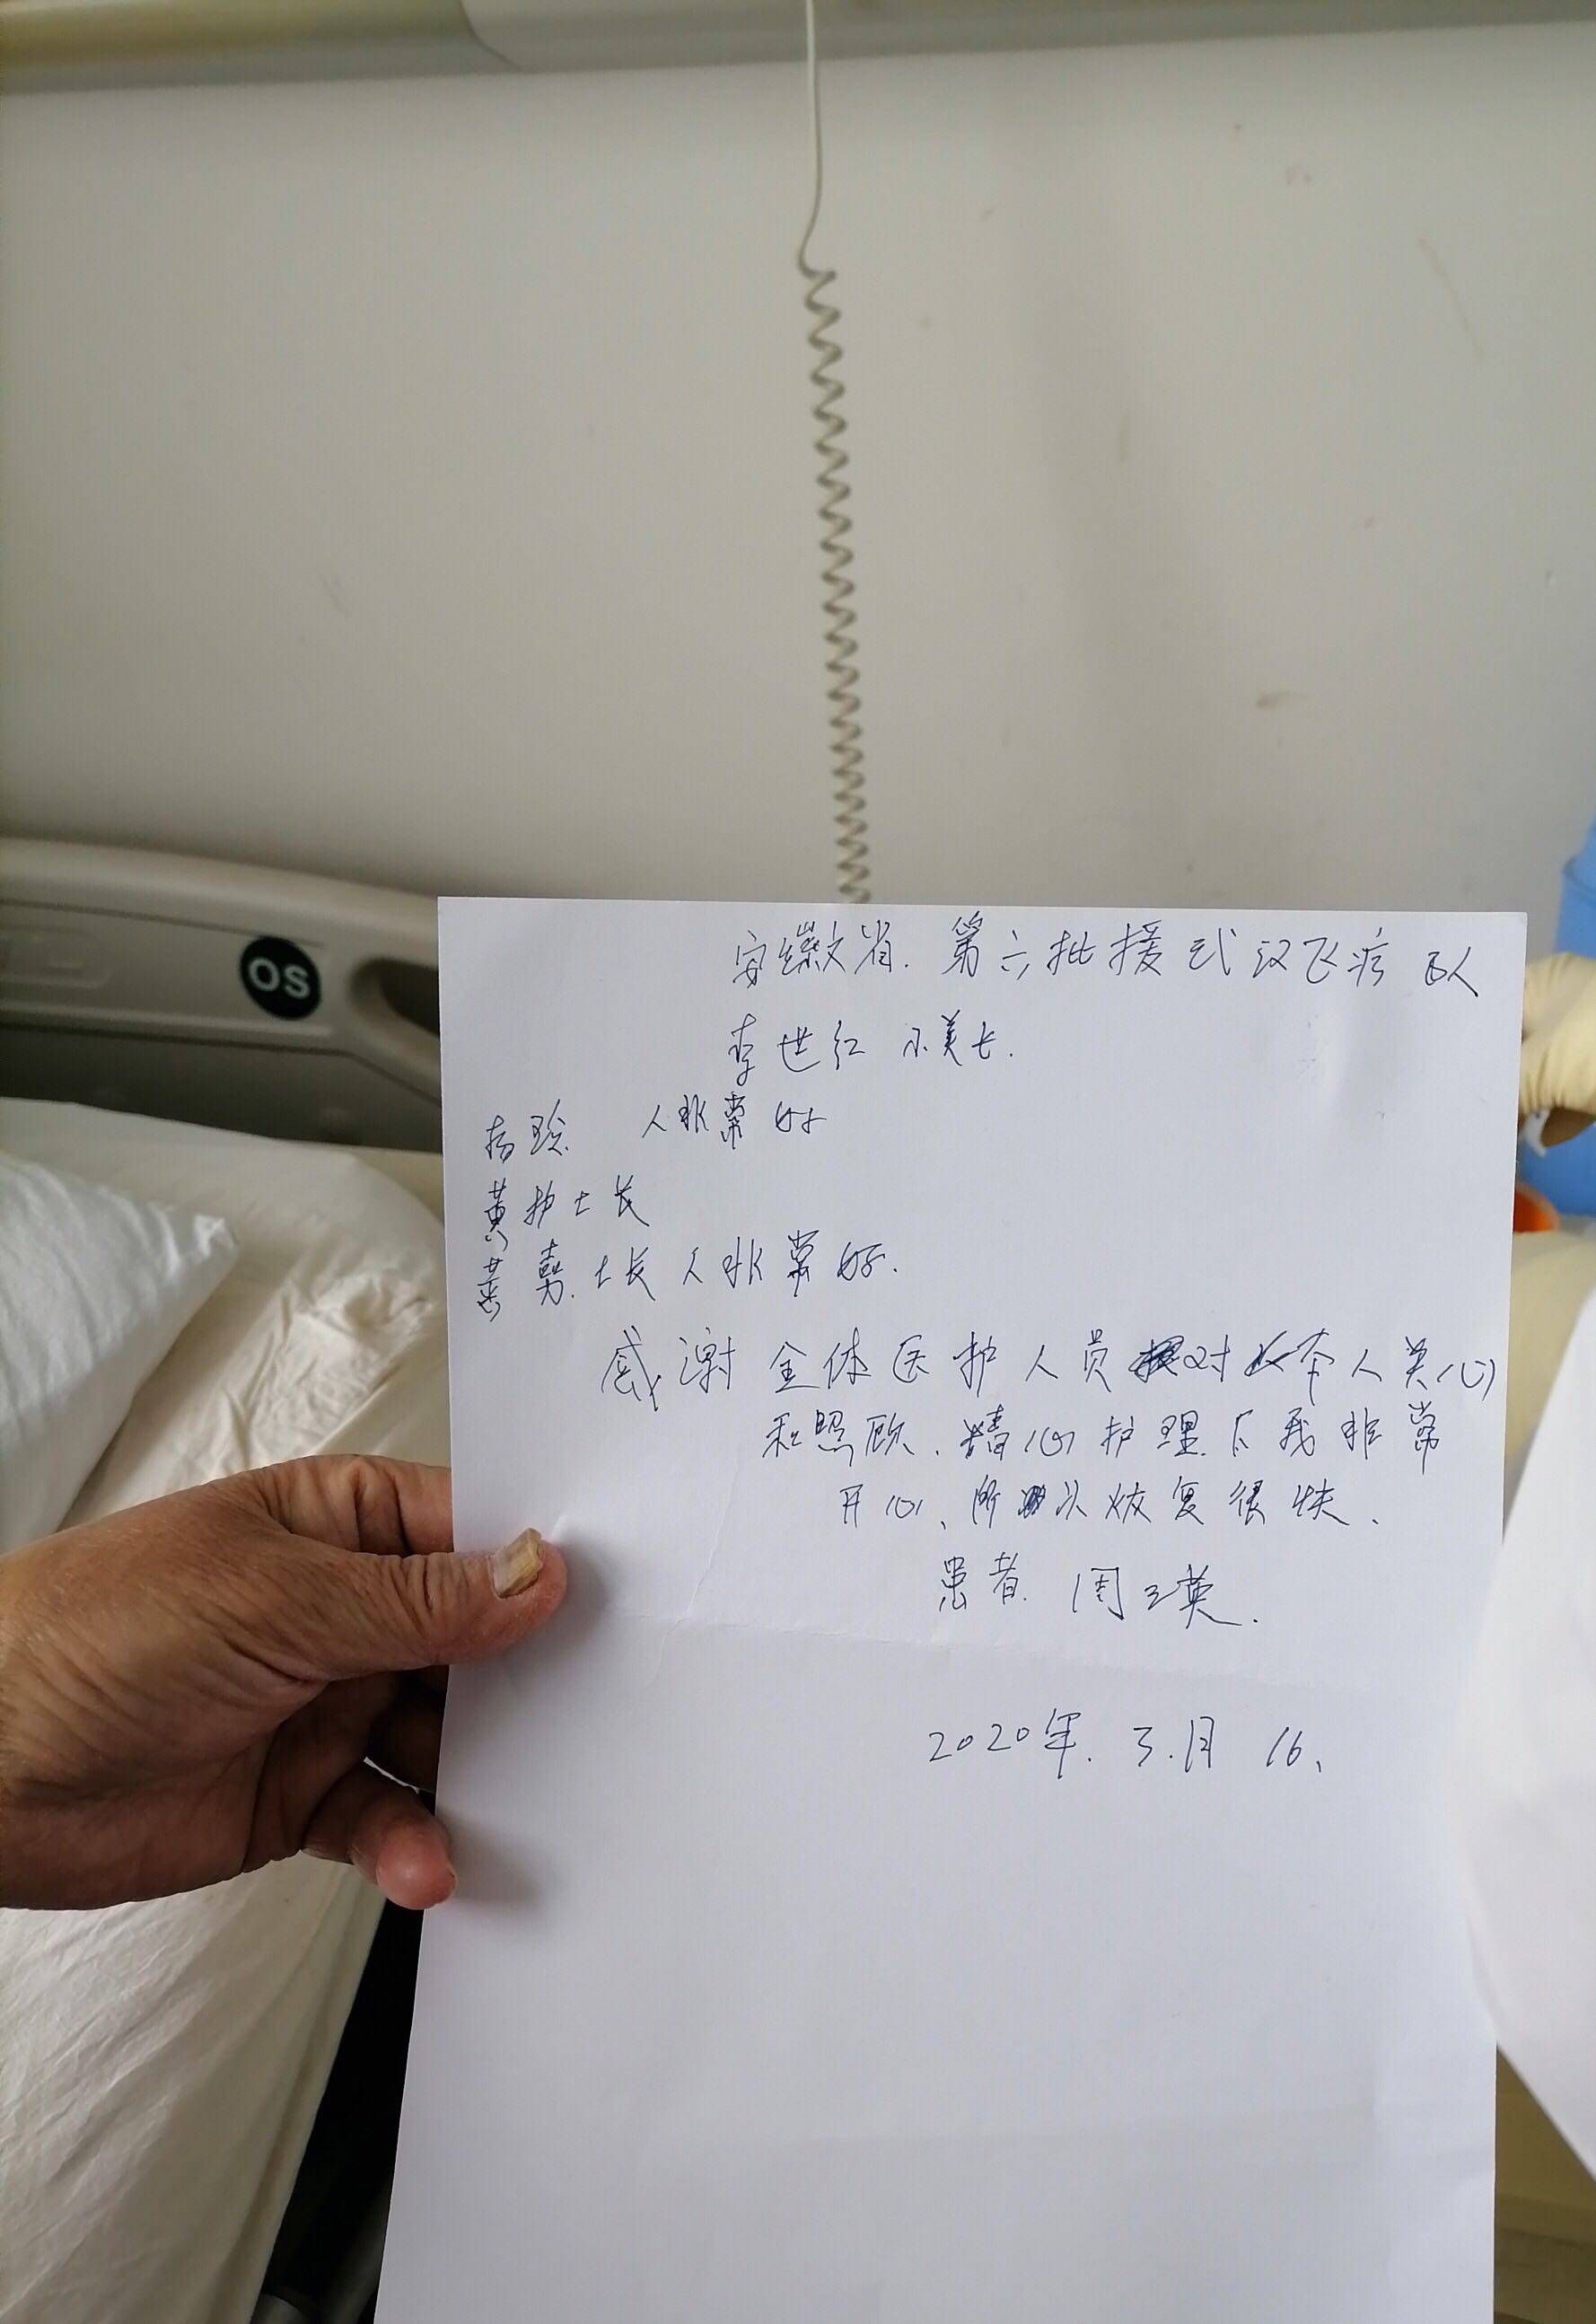 OS
安徽省.第六批援武汉医疗队
李世红 美长.
杨玲 人非常好
黄护士长
黄勇.士长人非常好.
感谢全体医护人员对本人关心
和照顾、精心护理下我非常
开心、所以恢复很快、
患者 周三英.
2020年.3.月 16、